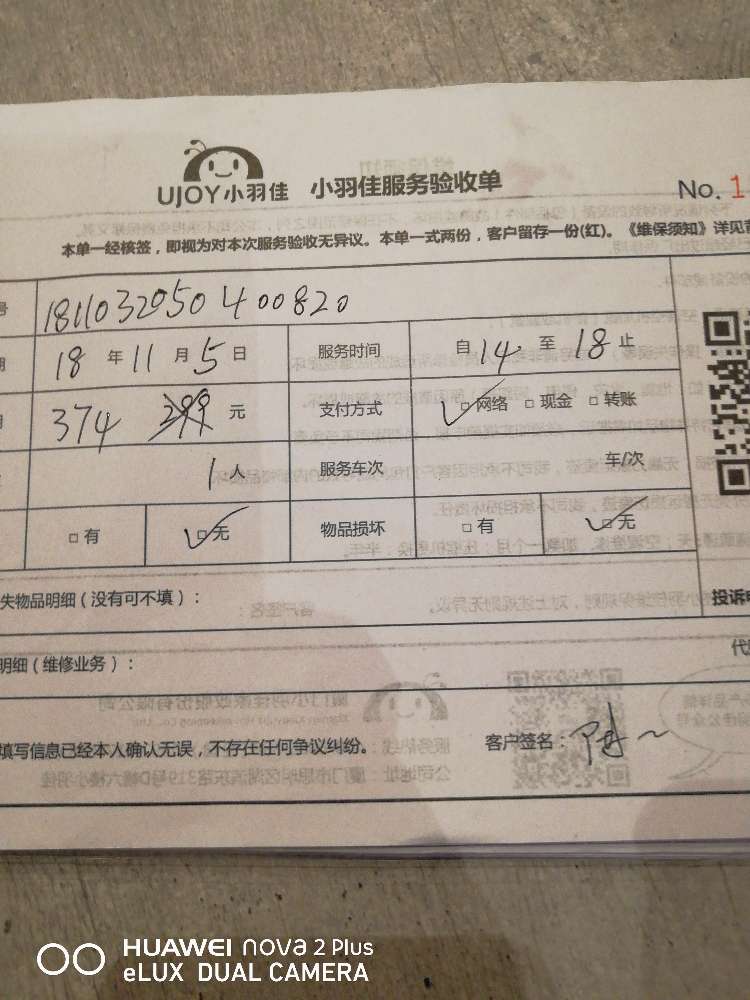 UJOY小羽佳 小羽佳服务验收单
No. 1
本单一经核签，即视为对本次服务验收无异议。本单一式两份，客户留存一份(红)。《维保须知》详见背
号 181103205040082​0
期 18 年 11 月 5 日 服务时间 自 14 至 18 止
用 374 299 元 支付方式 网络 现金 转账
1 人 服务车次 车/次
有 无 物品损坏 有 无
失物品明细（没有可不填）： 投诉电
明细（维修业务）：
填写信息已经本人确认无误，不存在任何争议纠纷。 客户签名：
HUAWEI nova 2 Plus
eLUX DUAL CAMERA